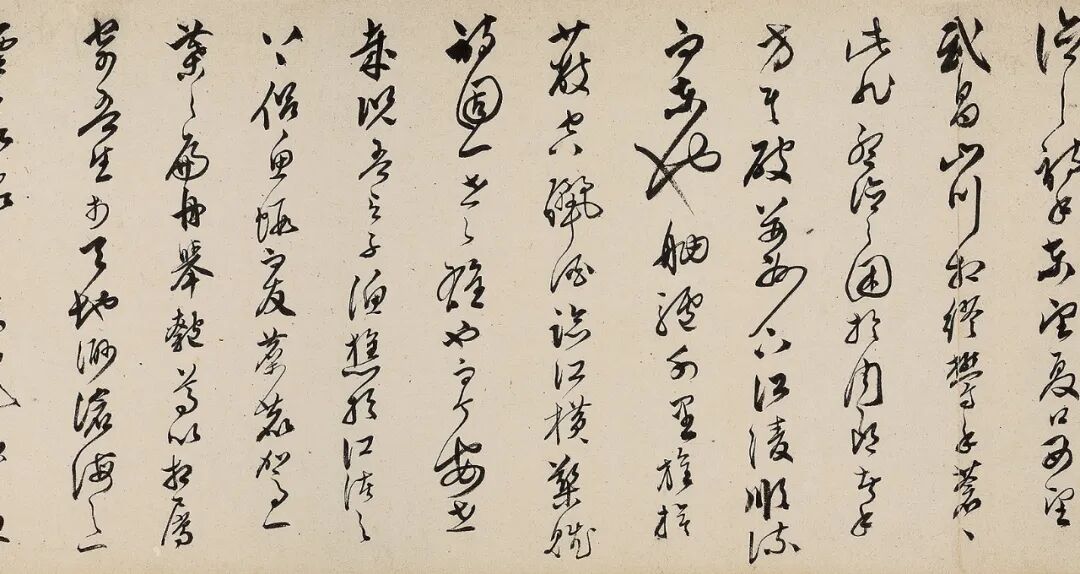 德之詩乎東望夏口西望
武昌山川相繆鬱乎蒼〻
此非孟德之困於周郎者乎
方其破荊州下江陵順流
而東也舳艫千里旌旗
蔽空釃酒臨江橫槊賦
詩固一世之雄也而今安在
哉況吾與子漁樵於江渚之
上侶魚蝦而友麋鹿駕一
葉之扁舟舉匏尊以相屬
寄吾生於天地渺滄海之一